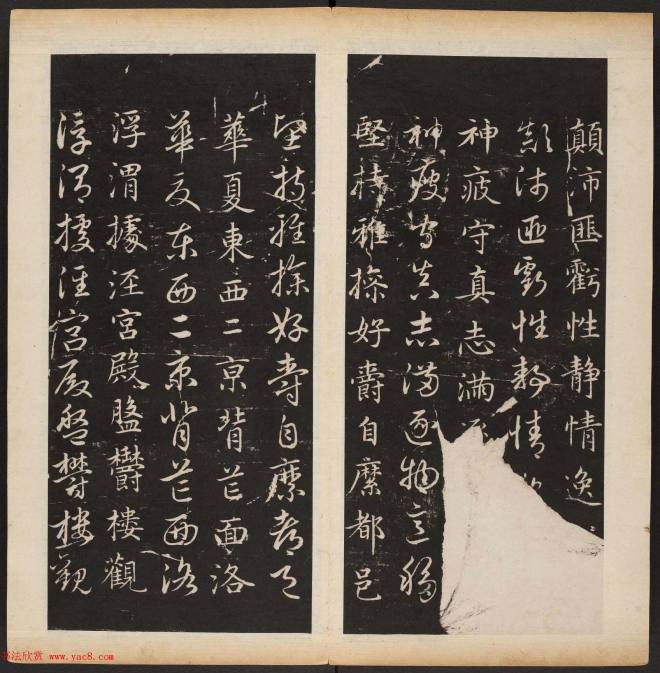 顛沛匪虧性静情逸
顛沛匪虧性静情
神疲守真志滿
神疲守真志滿逐物意移
堅持雅操好爵自縻都邑
堅持雅操好爵自縻都邑
華夏東西二京背芒面洛
華夏東西二京背芒面洛
浮渭據涇宮殿盤欝樓觀
浮渭據涇宮殿盤欝樓觀
书法欣赏 www.yac8.com